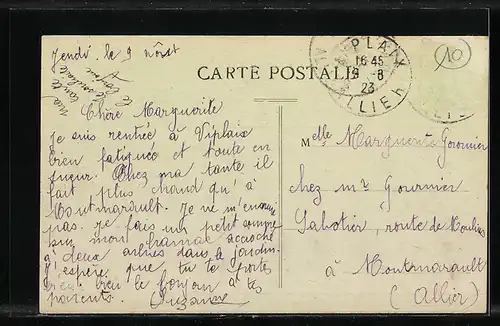 Jeudi le 9 Août
CARTE POSTALE
16 45
9 - 8
23
ALLIER
10
Chère Marguerite
Je suis rentrée à Viplaix
bien fatiguée et toute en
sueur. Chez ma tante il
fait plus chaud qu'à
Montmarault. Je ne m'ennuie
pas. Je fais un petit somme
sur mon hamac accroché
à deux arbres dans le jardin.
J'espère que tu te portes
bien le bonjour à tes
parents. Suzanne
Melle Marguerite
chez mr
Sabotier, route de Moulins
à Montmarault
(Allier)